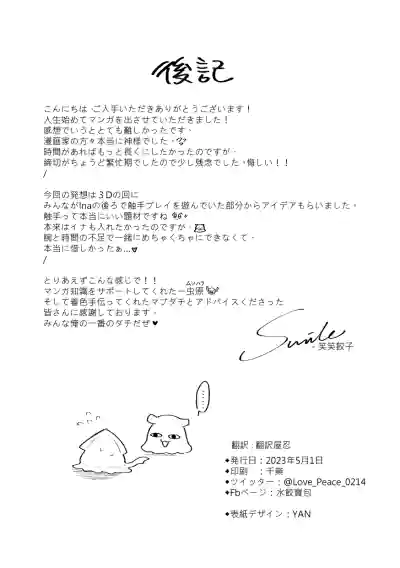 後記
こんにちは、ご入手いただきありがとうございます！
人生始めてマンガを出させていただきました！
感想でいうととても難しかったです。
漫画家の方々本当に神様でした。
時間があればもっと長くにしたかったのですが、
締切がちょうど繁忙期でしたので少し残念でした。悔しい！！
/
今回の発想は３Dの回に
みんながInaの後ろで触手プレイを遊んでいた部分からアイデアもらいました。
触手って本当にいい題材ですね
本来はイナも入れたかったのですが、
腕と時間の不足で一緒にめちゃくちゃにできなくて、
本当に惜しかったぁ...
/
とりあえずこんな感じで！！
マンガ知識をサポートしてくれた一虫原
ムシハラ
そして着色手伝ってくれたマブダチとアドバイスくださった
皆さんに感謝しております。
みんな俺の一番のダチだぜ♥
Smile
- 笑笑餃子
......
翻訳：翻訳屋忍
◆発行日：2023年5月1日
◆印刷　：千葉
◆ツイッター：@Love_Peace_0214
◆Fbページ：水餃寶包
◆表紙デザイン：YAN